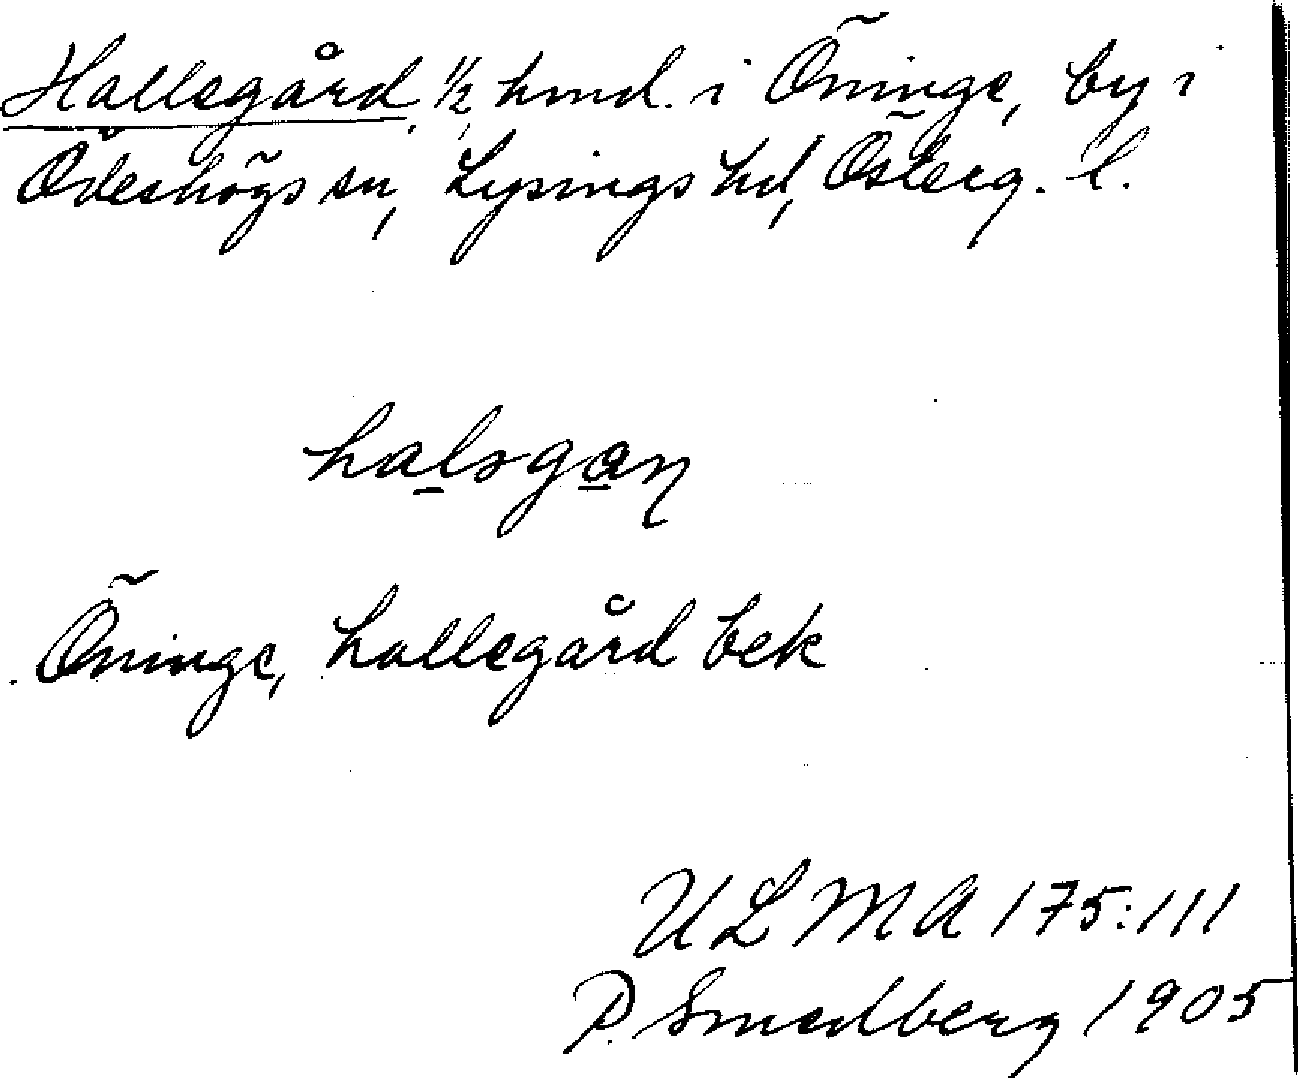 Hallegård, 1/2 hmd. i Öninge, by i
Ödeshögs sn, Lysings hd, Österg. l.
halsgaɳ
Öninge, hallegård bek
ULMA 175:111
P. Smedberg 1905